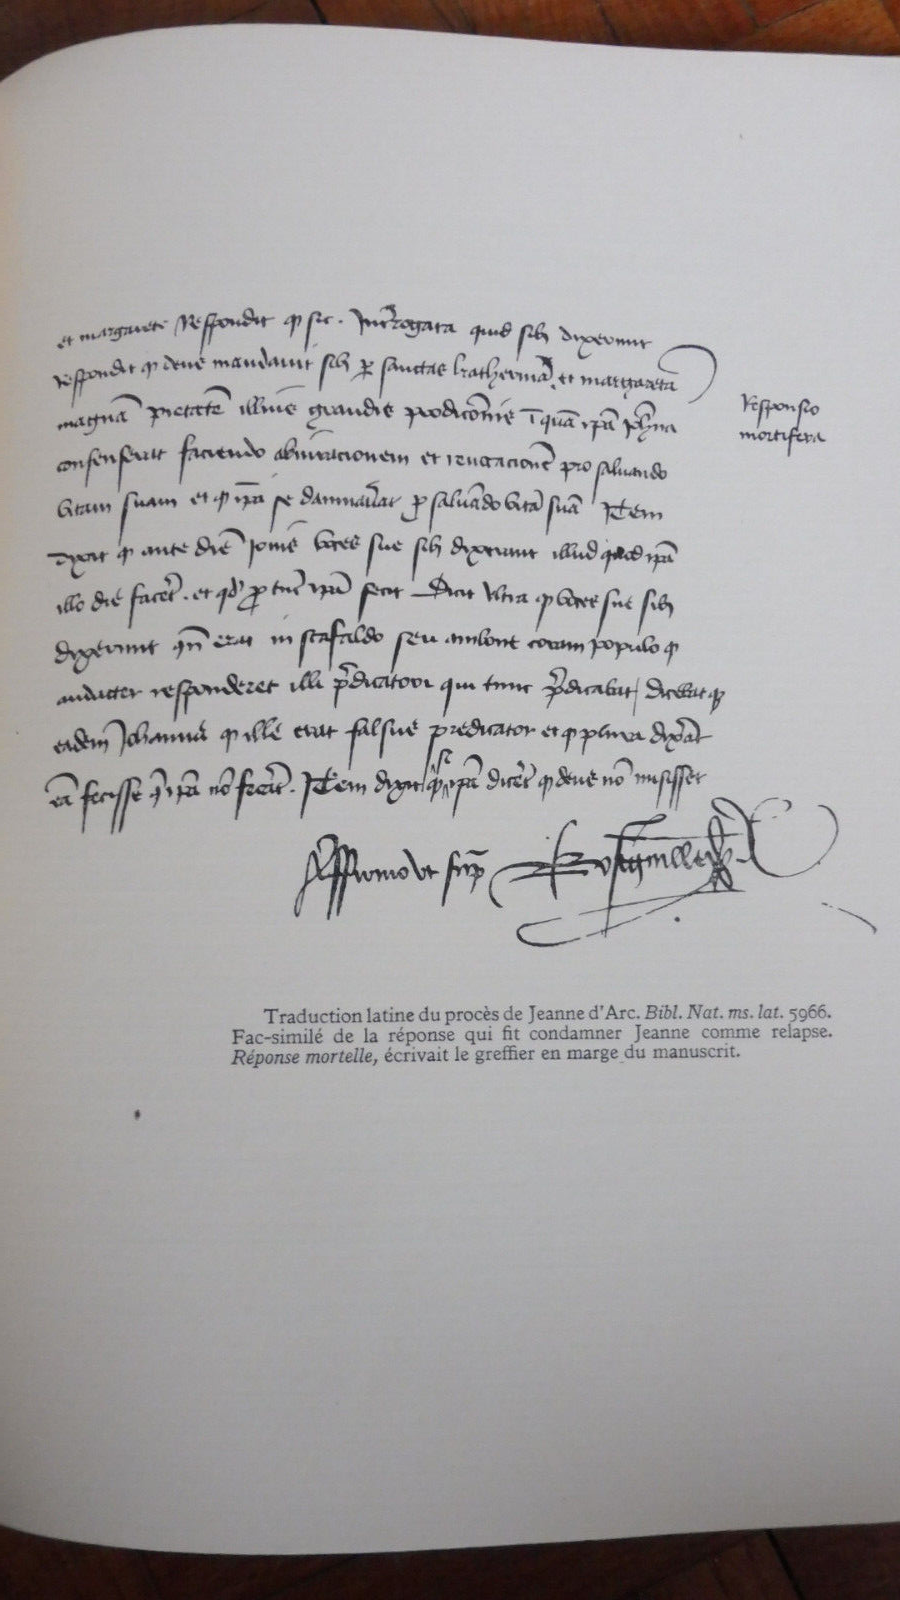 et margarete Respondit q̄ sic . Int̄rogata quid sib̄ dixerunt
respondit q̄ deus mandavit sib̄ p̄ sanctas katherinā et margaretā
magnā pietatē illius grandis prodicōnis ī quā ip̄a Joh̄na
consenserat faciendo abiuracionem et revocacionē pro salvando
vitam suam et q̄ ip̄a se damnav̄at p̄ salvādo vitā suā Item
Dixit q̄ ante diē Jovis voces sue sib̄ dixerunt illud quod ip̄a
illo die facēt . et qd̄ p̄ tūc ip̄a fecit Dicit ultra q̄ voces sue sib̄
dixerunt qn̄ erat in scafaldo seu ambone coram populo q̄
audacter responderet illi p̄dicatori qui tunc p̄dicabat , dicebat q̄
eadem Johanna q̄ ille erat falsus predicator et q̄ plura dixāt
eā fecisse q̄ ip̄a nō feāt . Item dixit q̄ si ip̄a dicēt q̄ deus nō misisset
Responsio
mortifera
Affirmo ut sup̄ Bosguille
Traduction latine du procès de Jeanne d'Arc. Bibl. Nat. ms. lat. 5966.
Fac-similé de la réponse qui fit condamner Jeanne comme relapse.
Réponse mortelle, écrivait le greffier en marge du manuscrit.